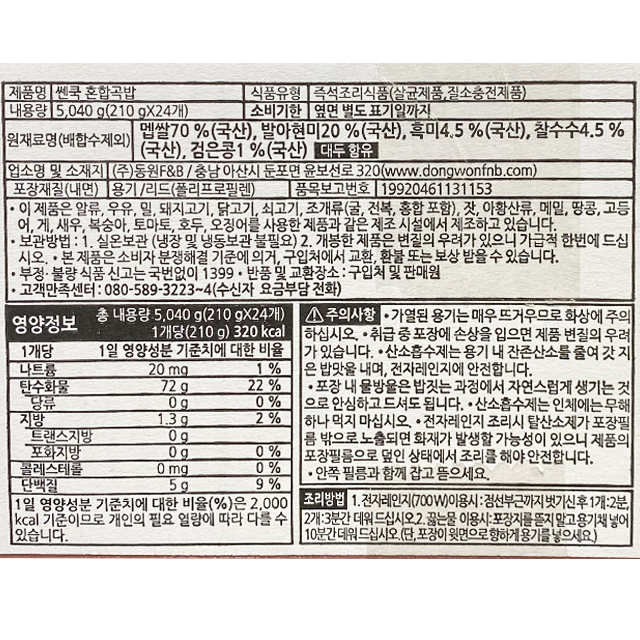 제품명 쎈쿡 혼합곡밥 식품유형 즉석조리식품(살균제품,질소충전제품)
내용량 5,040 g(210 gX24개) 소비기한 옆면 별도 표기일까지
원재료명(배합수제외) 멥쌀70 %(국산), 발아현미20 %(국산), 흑미4.5 %(국산), 찰수수4.5 %
(국산), 검은콩1 %(국산) 대두 함유
업소명 및 소재지 (주)동원F&B / 충남 아산시 둔포면 윤보선로 320(www.dongwonfnb.com)
포장재질(내면) 용기 / 리드(폴리프로필렌) 품목보고번호 19920461131153
• 이 제품은 알류, 우유, 밀, 돼지고기, 닭고기, 쇠고기, 조개류(굴, 전복, 홍합 포함), 잣, 아황산류, 메밀, 땅콩, 고등
어, 게, 새우, 복숭아, 토마토, 호두, 오징어를 사용한 제품과 같은 제조 시설에서 제조하고 있습니다.
• 보관방법 : 1. 실온보관 (냉장 및 냉동보관 불필요) 2. 개봉한 제품은 변질의 우려가 있으니 가급적 한번에 드십
시오. • 본 제품은 소비자 분쟁해결 기준에 의거, 구입처에서 교환, 환불 또는 보상 받을 수 있습니다.
• 부정·불량 식품 신고는 국번없이 1399 • 반품 및 교환장소 : 구입처 및 판매원
• 고객만족센터 : 080-589-3223~4(수신자 요금부담 전화)
영양정보 총 내용량 5,040 g(210 gX24개)
1개당(210 g) 320 kcal
1개당 1일 영양성분 기준치에 대한 비율
나트륨 20 mg 1 %
탄수화물 72 g 22 %
당류 0 g 0 %
지방 1.3 g 2 %
트랜스지방 0 g
포화지방 0 g 0 %
콜레스테롤 0 mg 0 %
단백질 5 g 9 %
1일 영양성분 기준치에 대한 비율(%)은 2,000
kcal 기준이므로 개인의 필요 열량에 따라 다를 수
있습니다.
⚠ 주의사항 • 가열된 용기는 매우 뜨거우므로 화상에 주의
하십시오. • 취급 중 포장에 손상을 입으면 제품 변질의 우려
가 있습니다. • 산소흡수제는 용기 내 잔존산소를 줄여 갓 지
은 밥맛을 내며, 전자레인지에 안전합니다.
• 포장 내 물방울은 밥짓는 과정에서 자연스럽게 생기는 것
으로 안심하고 드셔도 됩니다. • 산소흡수제는 인체에는 무해
하나 먹지 마십시오. • 전자레인지 조리시 탈산소제가 포장필
름 밖으로 노출되면 화재가 발생할 가능성이 있으니 제품의
포장필름으로 덮인 상태에서 조리를 해야 안전합니다.
• 안쪽 필름과 함께 잡고 뜯으세요.
조리방법 1. 전자레인지(700 W)이용시 : 점선부근까지 벗기신후 1개:2분,
2개:3분간 데워드십시오. 2. 끓는물 이용시: 포장지를 뜯지 말고 용기채 넣어
10분간 데워드십시오. (단, 포장이 윗면으로 향하게 용기를 넣으세요.)